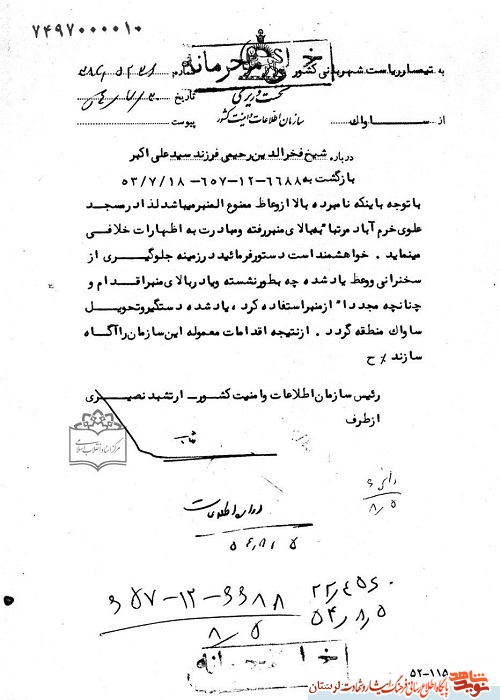 7497000010
خیلی محرمانه
به تیمسار ریاست شهربانی کشور
شماره
نخست وزیری
سازمان اطلاعات و امنیت کشور
تاریخ
از ساواك
پیوست
درباره شیخ فخرالدین رحیمی فرزند سید علی اکبر
بازگشت به ۶۶۸۸-۱۲-۶۵۷-۵۳/۷/۱۸
با توجه باینکه نامبرده بالا از وعاظ ممنوع المنبر میباشد لذا در مسجد
علوی خرم آباد مرتبا" به بالای منبر رفته و مبادرت به اظهارات خلافی
مینماید . خواهشمند است دستور فرمائید در زمینه جلوگیری از
سخنرانی و وعظ یاد شده چه بطور نشسته و یا در بالای منبر اقدام و
چنانچه مجددا" از منبر استفاده کرد ، یاد شده دستگیر و تحویل
ساواك منطقه گردد . از نتیجه اقدامات معموله این سازمان را آگاه
سازند / ح
رئیس سازمان اطلاعات و امنیت کشور - ارتشبد نصیری
از طرف
مرکز اسناد انقلاب اسلامی
۸/۵
اداره اطلاعات
۵۴/۸/۵
۶۵۷-۱۲-۶۶۸۸
۸/۵
۵۴/۸/۵
۵۲-۱۱۵
نوید شاهد
پایگاه اطلاع رسانی فرهنگ ایثار و شهادت لرستان